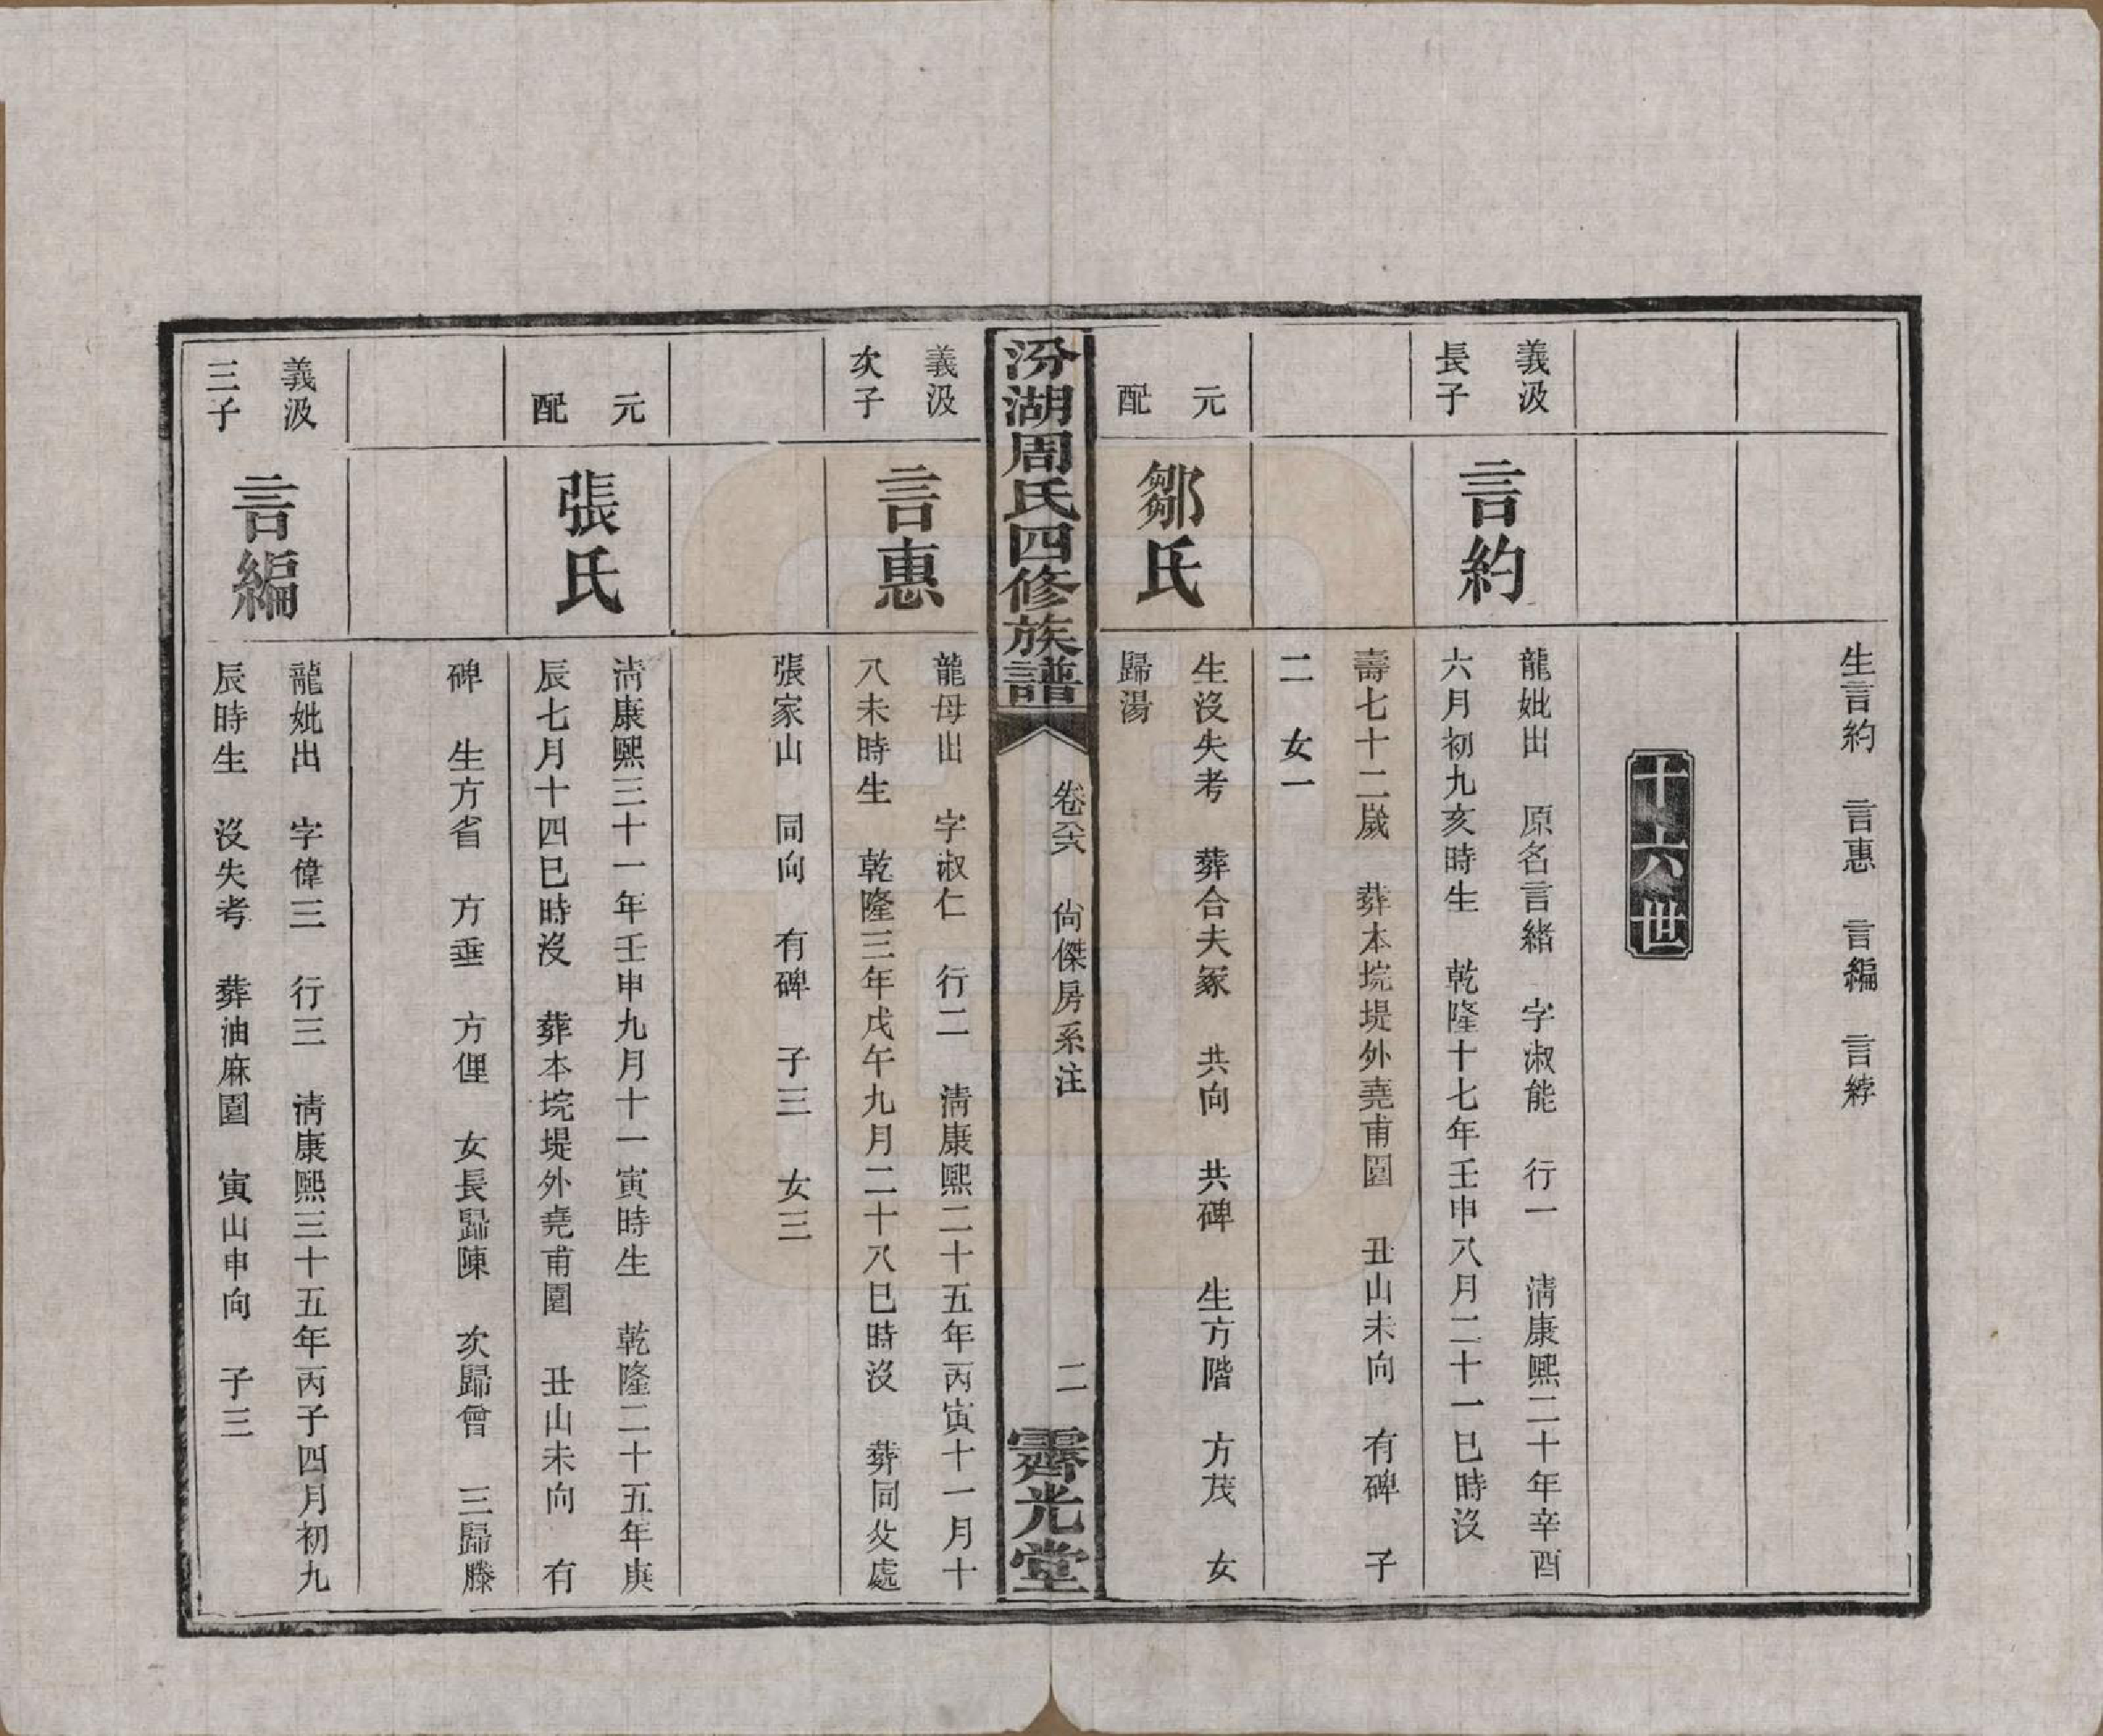 生言約　言惠　言編　言綍
十六世
義汲
長子
言約
龍妣出　原名言緒　字淑能　行一　清康熙二十年辛酉
六月初九亥時生　乾隆十七年壬申八月二十一巳時沒
壽七十二歲　葬本垸堤外堯甫園　丑山未向　有碑　子
二　女一
元
配
鄒氏
生沒失考　葬合夫冢　共向　共碑　生方階　方茂　女
歸湯
汾湖周氏四修族譜
卷六　尚傑房系注
二
霽光堂
義汲
次子
言惠
龍母出　字淑仁　行二　清康熙二十五年丙寅十一月十
八未時生　乾隆三年戊午九月二十八巳時沒　葬同父處
張家山　同向　有碑　子三　女三
元
配
張氏
清康熙三十一年壬申九月十一寅時生　乾隆二十五年庚
辰七月十四巳時沒　葬本垸堤外堯甫園　丑山未向　有
碑　生方省　方垂　方俚　女長歸陳　次歸曾　三歸滕
義汲
三子
言編
龍妣出　字偉三　行三　清康熙三十五年丙子四月初九
辰時生　沒失考　葬油麻園　寅山申向　子三